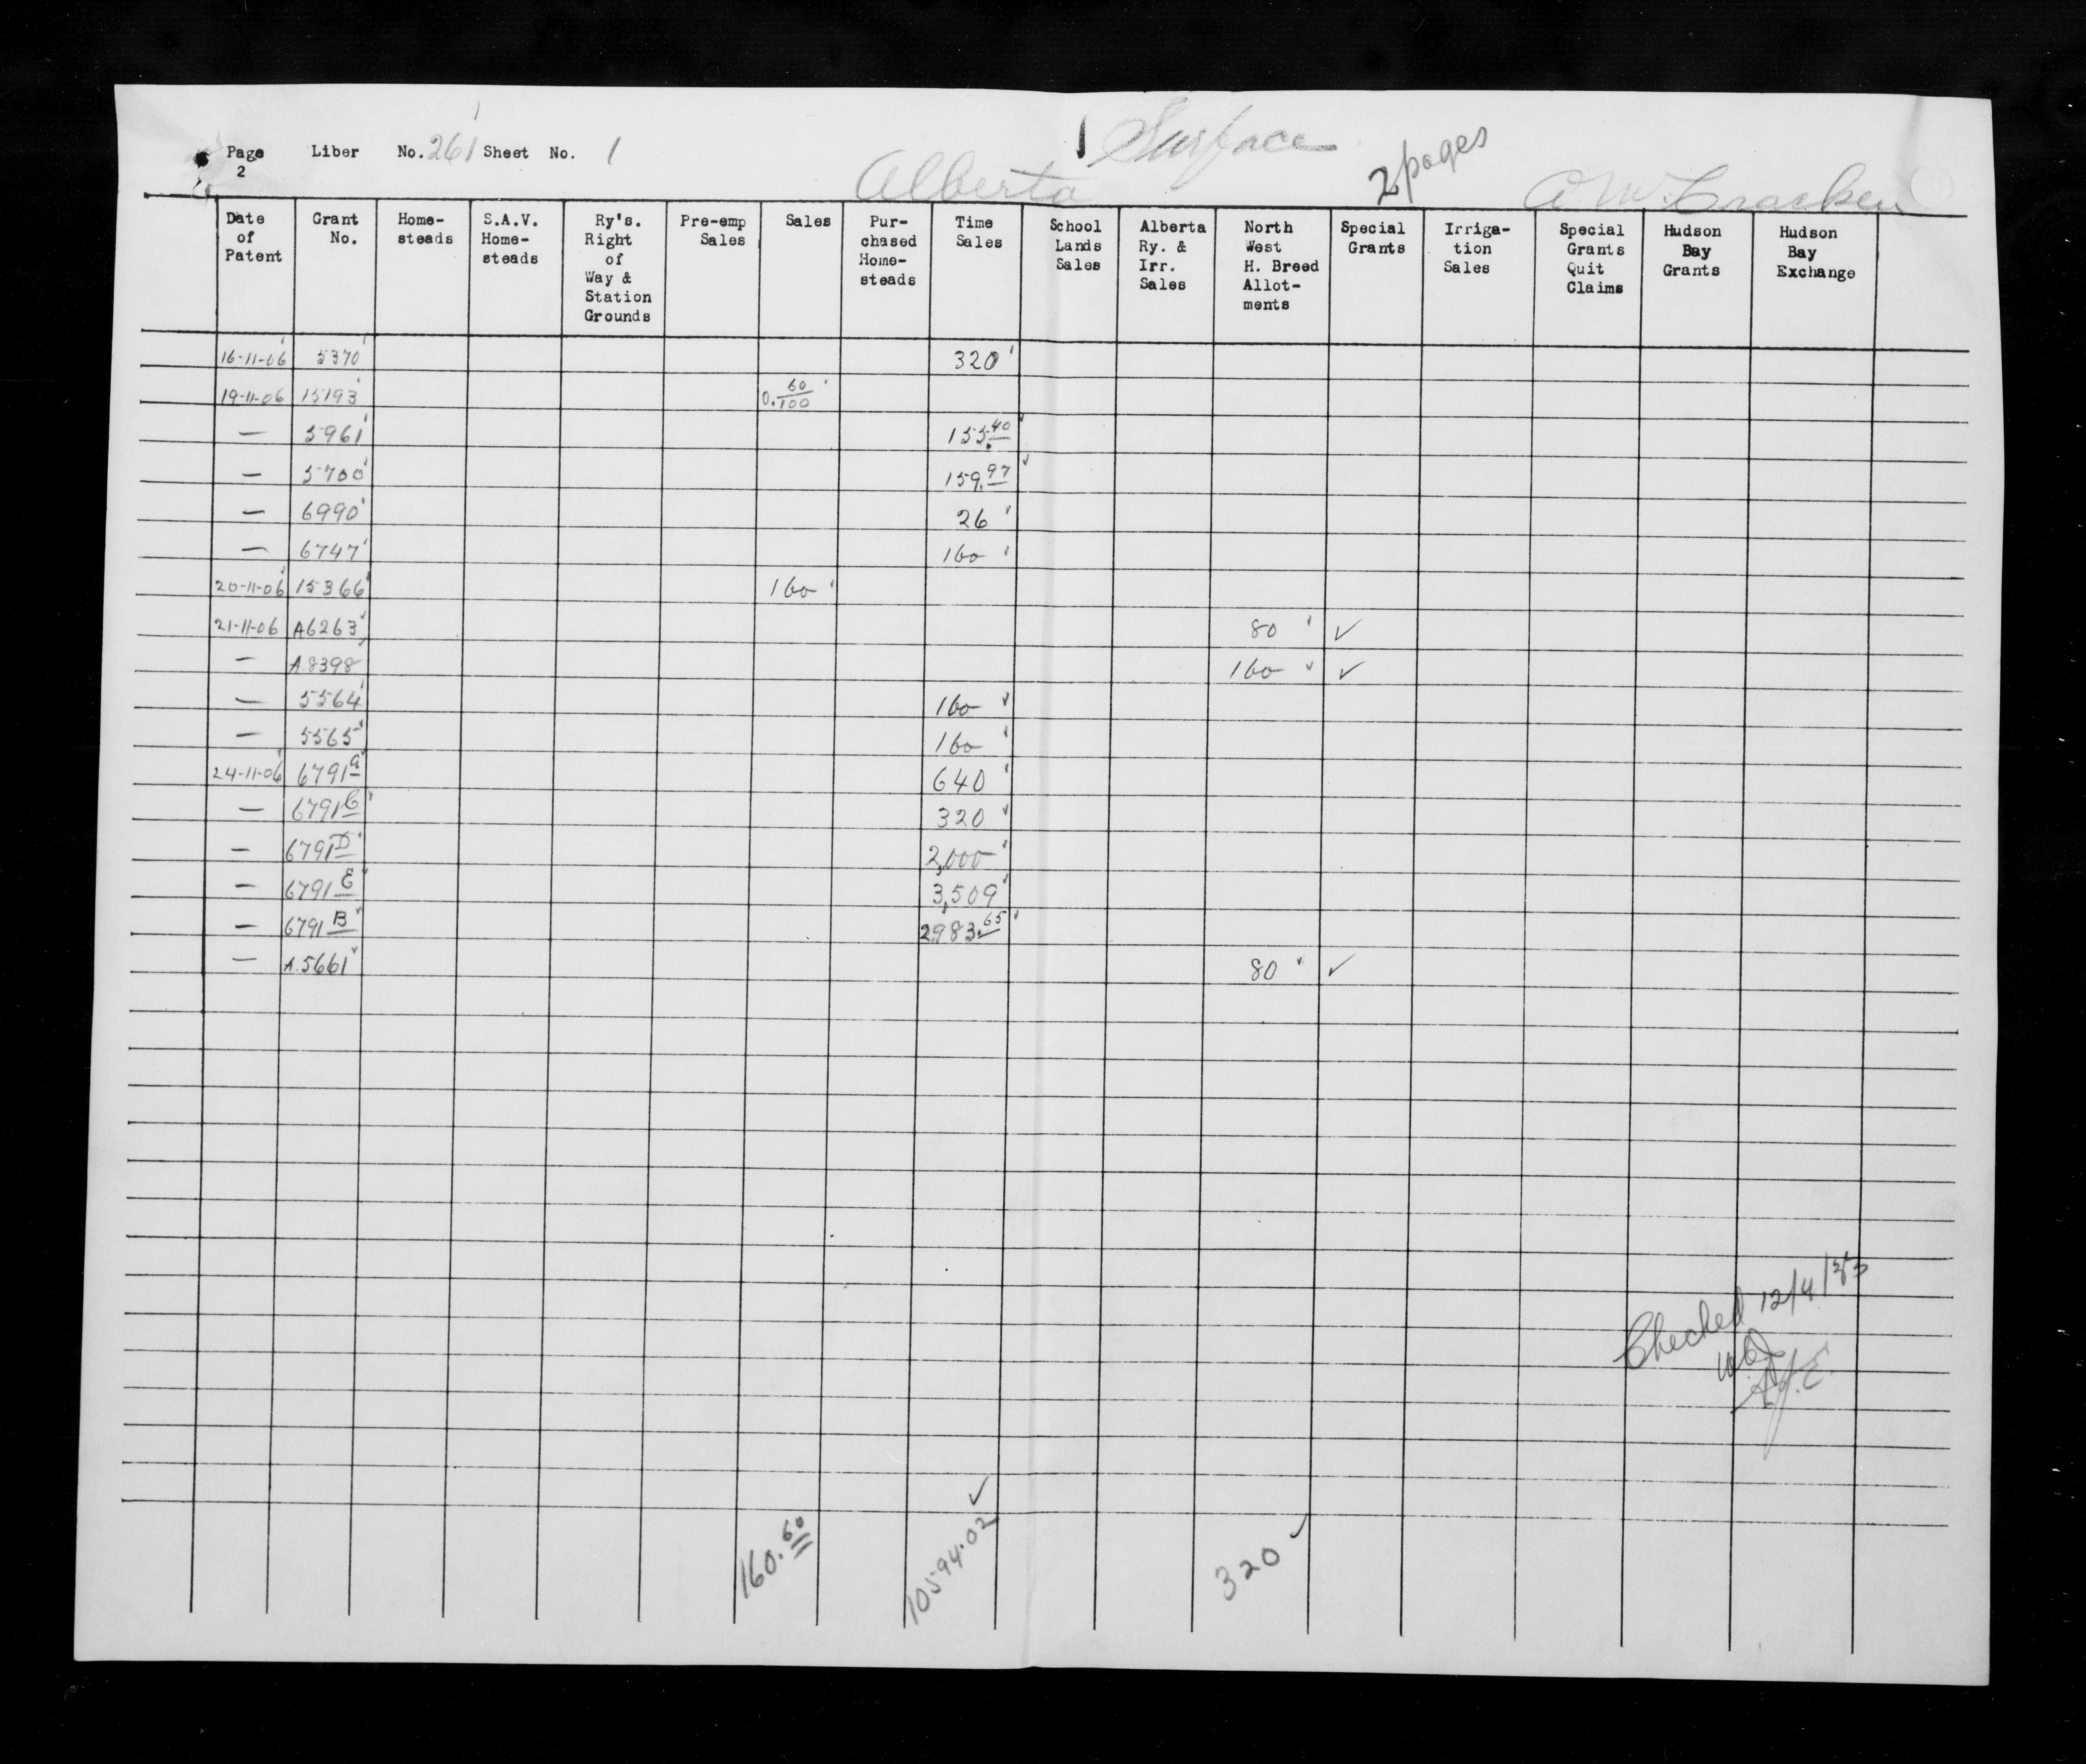 1 Surface
Page 2 Liber No. 261 Sheet No. 1
Alberta
2 pages
A. McCracken
Date of Patent | Grant No. | Home-steads | S.A.V. Home-steads | Ry's. Right of Way & Station Grounds | Pre-emp Sales | Sales | Pur-chased Home-steads | Time Sales | School Lands Sales | Alberta Ry. & Irr. Sales | North West H. Breed Allot-ments | Special Grants | Irriga-tion Sales | Special Grants Quit Claims | Hudson Bay Grants | Hudson Bay Exchange
16-11-06 5370 320
19-11-06 15193 0.60/100
— 5961 155.40
— 5700 159.97
— 6990 26
— 6747 160
20-11-06 15366 160
21-11-06 A6263 80 ✓
— A.8398 160 ✓
— 5564 160
— 5565 160
24-11-06 6791a 640
— 6791C 320
— 6791D 2,000
— 6791E 3,509
— 6791B 2983.65
— A.5661 80 ✓
Checked 12/4/
A.J.E.
160.60 10594.02 ✓ 320 ✓